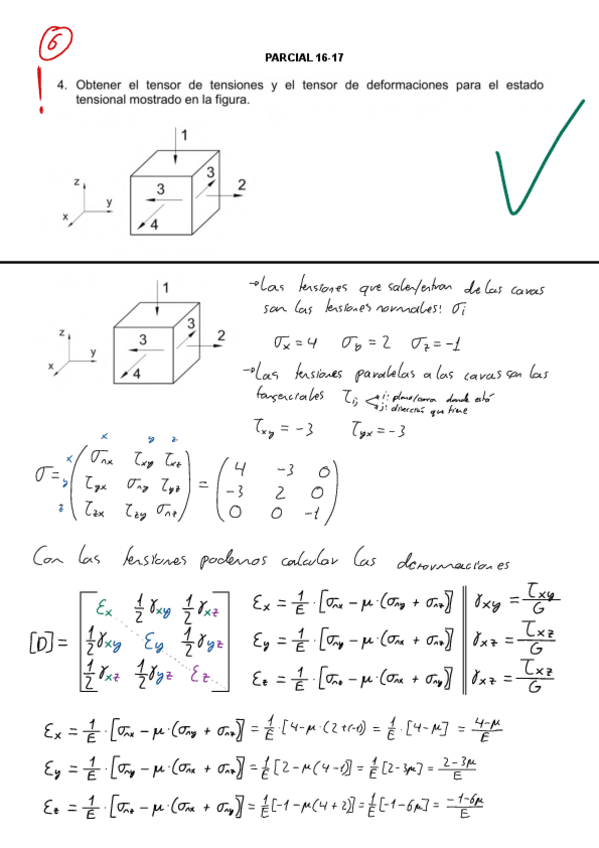 6
!
PARCIAL 16-17
4. Obtener el tensor de tensiones y el tensor de deformaciones para el estado
tensional mostrado en la figura.
1
3
3
2
4
z
y
x
1
3
3
2
4
z
y
x
→Las tensiones que salen/entran de las caras
son las tensiones normales: σi
σx = 4 σy = 2 σz = -1
→Las tensiones paralelas a las caras son las
tangenciales τij i: plano/cara donde está
j: dirección que tiene
τxy = -3 τyx = -3
x y z
x σnx τxy τxz 4 -3 0
σ = y τyx σny τyz = -3 2 0
z τzx τzy σnz 0 0 -1
Con las tensiones podemos calcular las deformaciones
εx ½γxy ½γxz
[D] = ½γxy εy ½γyz
½γxz ½γyz εz
εx = 1/E · [σnx - μ·(σny + σnz)] γxy = τxy/G
εy = 1/E · [σny - μ·(σnx + σnz)] γxz = τxz/G
εz = 1/E · [σnz - μ·(σnx + σny)] γxz = τxz/G
εx = 1/E · [σnx - μ·(σny + σnz)] = 1/E · [4-μ·(2+(-1)) = 1/E · [4-μ] = 4-μ/E
εy = 1/E · [σny - μ·(σnx + σnz)] = 1/E [2-μ(4-1)] = 1/E [2-3μ] = 2-3μ/E
εz = 1/E · [σnz - μ·(σnx + σny)] = 1/E [-1-μ(4+2)] = 1/E [-1-6μ] = -1-6μ/E